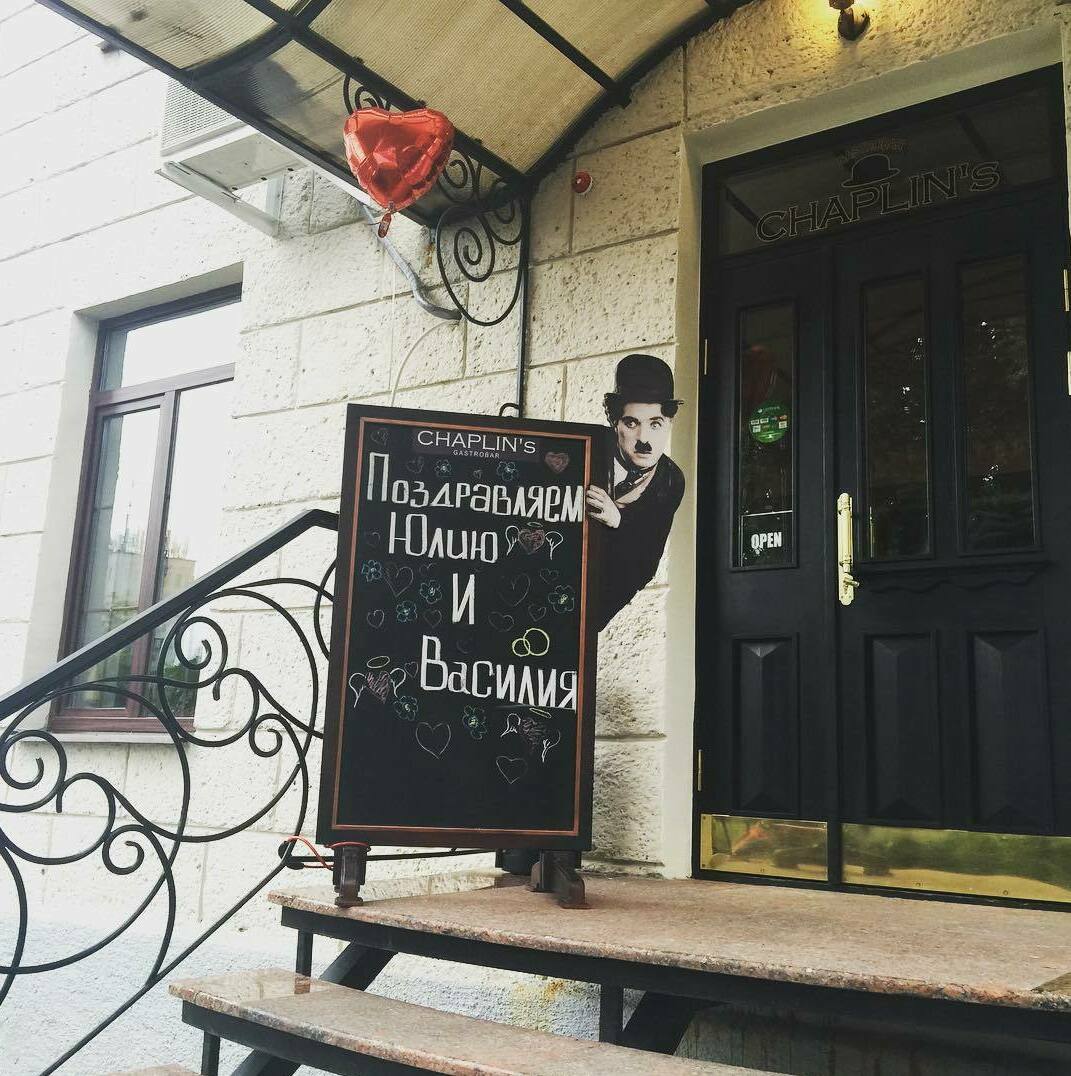 CHAPLIN'S
CHAPLIN'S
GASTROBAR
Поздравляем
Юлию
и
Василия
OPEN